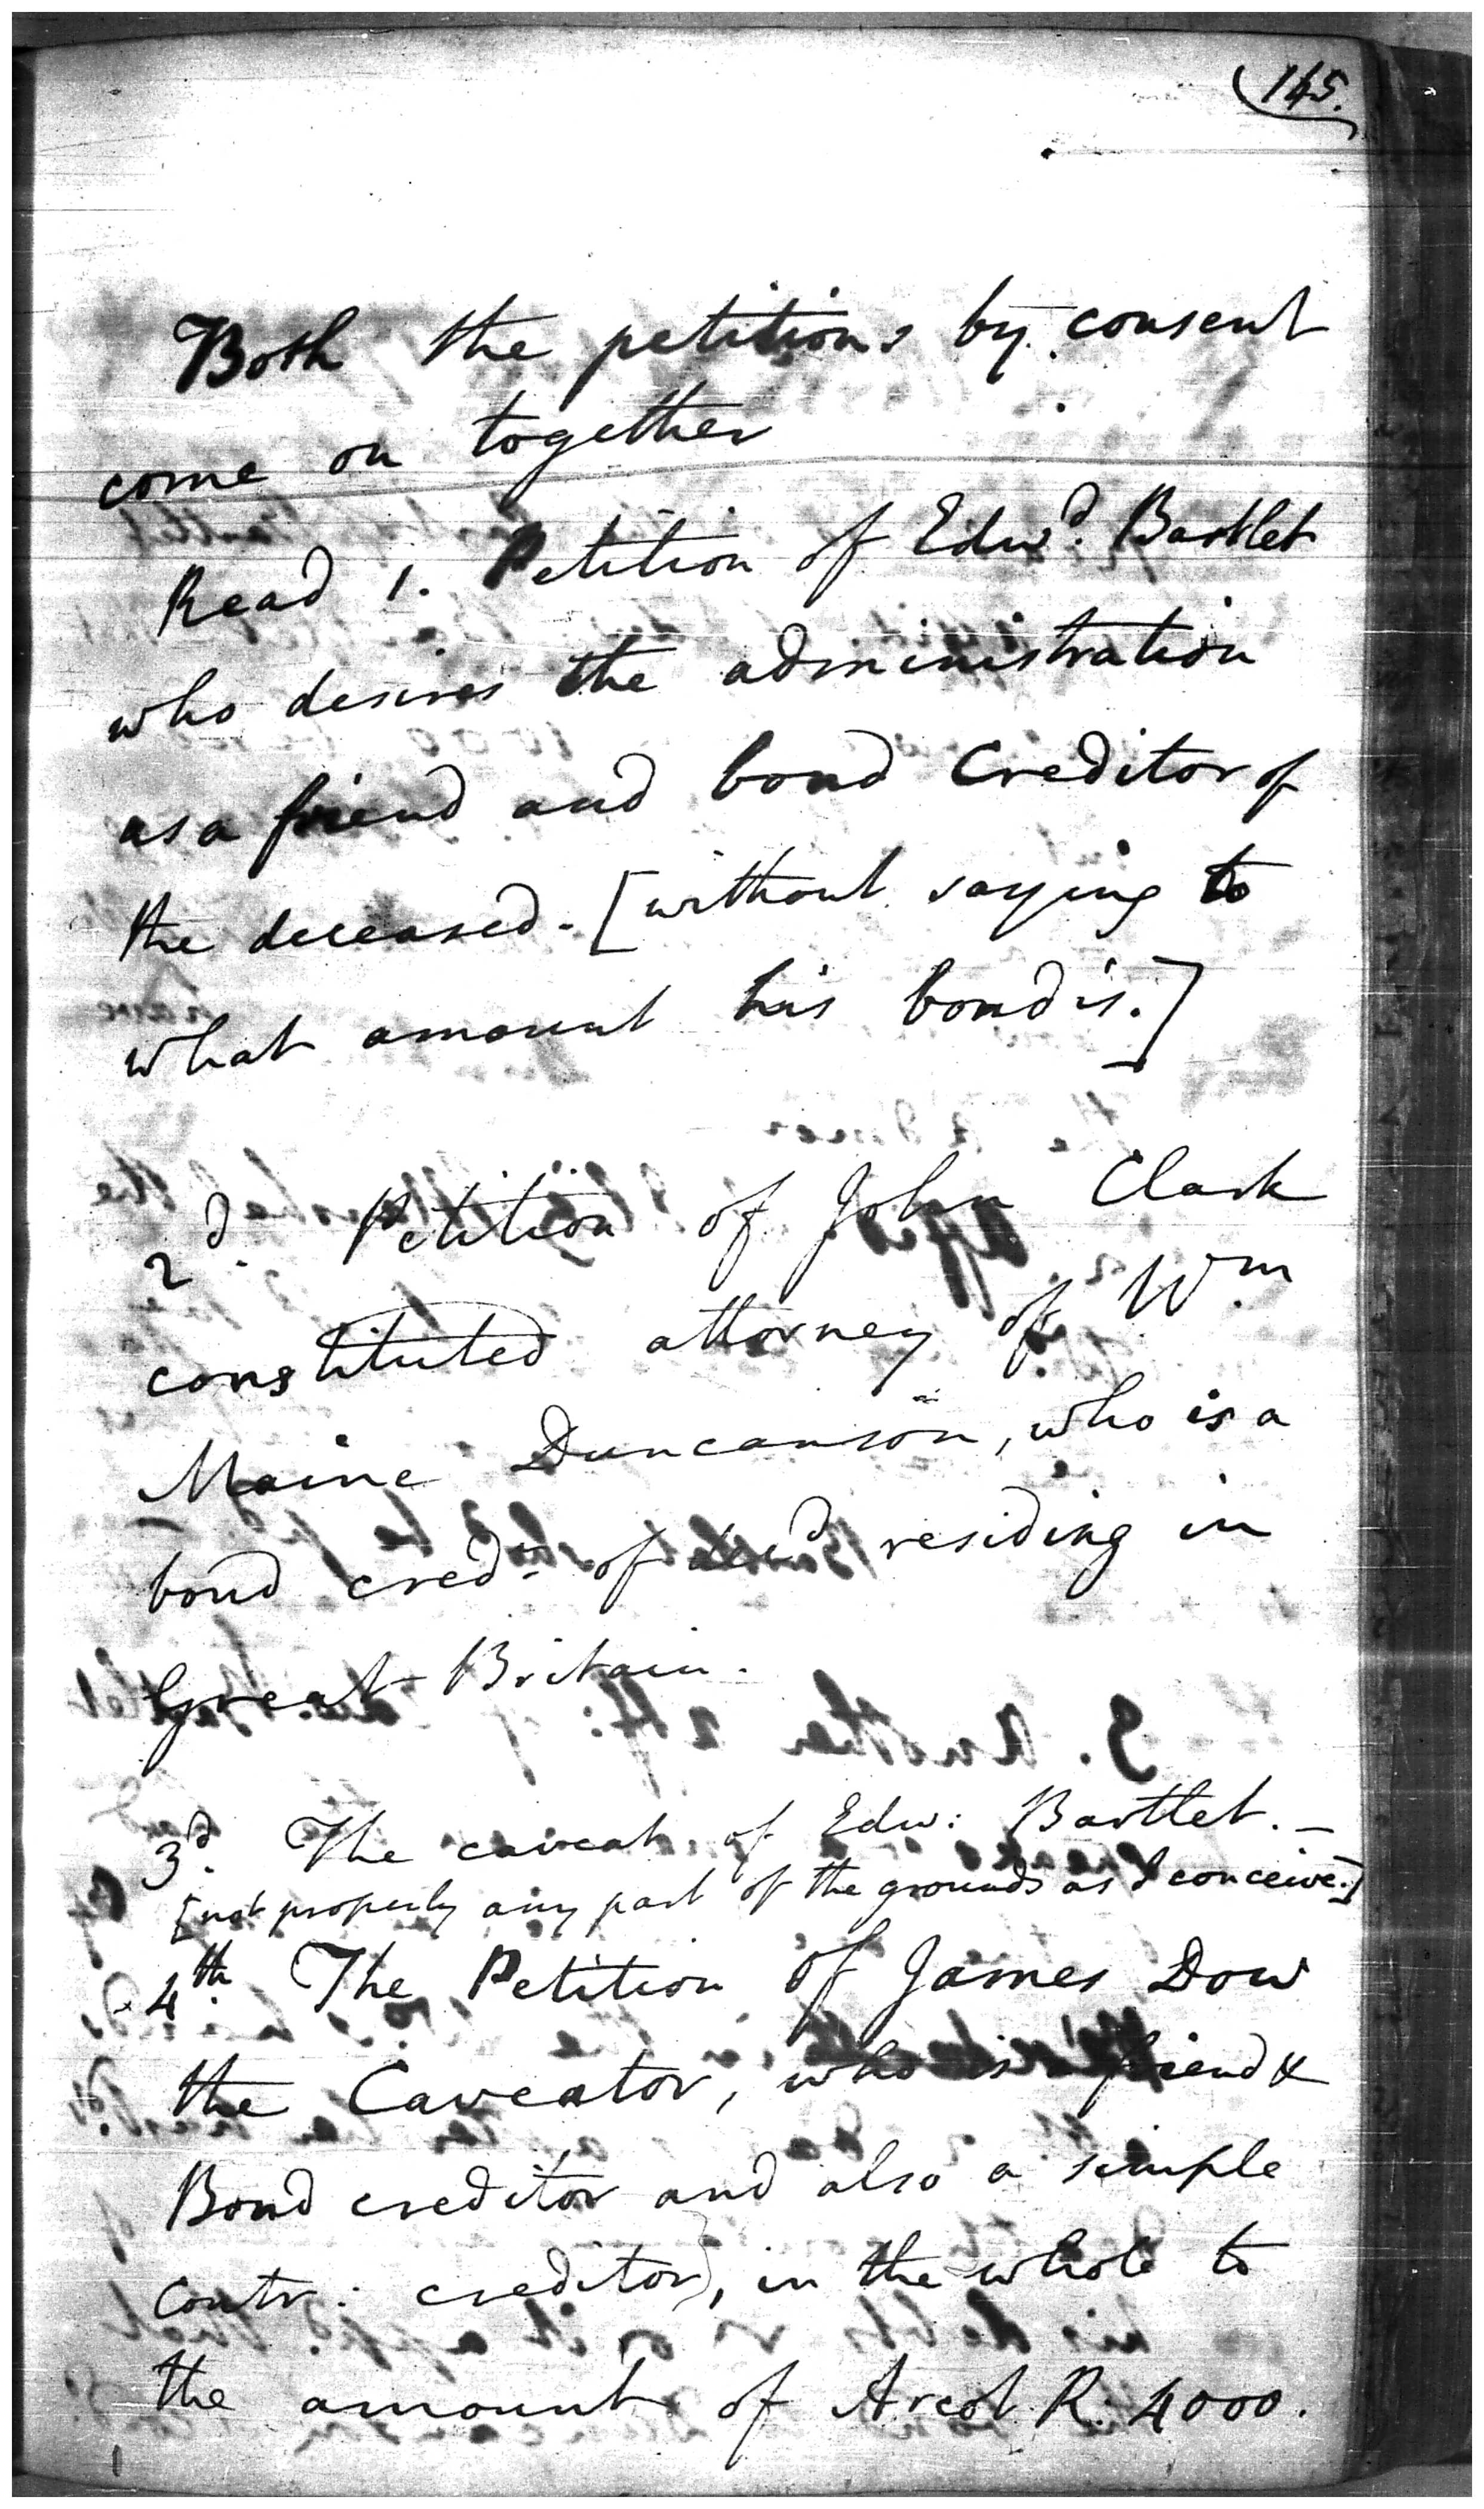 145.
Both the petitions by consent
come on together
Read 1. Petition of Edwd. Bartlet
who desires the administration
as a friend and bond Creditor of
the deceased. [without saying to
what amount his bond is.]
2d. Petition of John Clark
constituted attorney of Wm
Maine Duncanson, who is a
bond credr. of decd residing in
Great Britain.
3d. The caveat of Edw: Bartlet. –
[not properly any part of the grounds as I conceive.]
4th. The Petition of James Dow
the Caveator, who is friend &
Bond creditor and also a simple
contr: creditor, in the whole to
the amount of Arcot R. 4000.